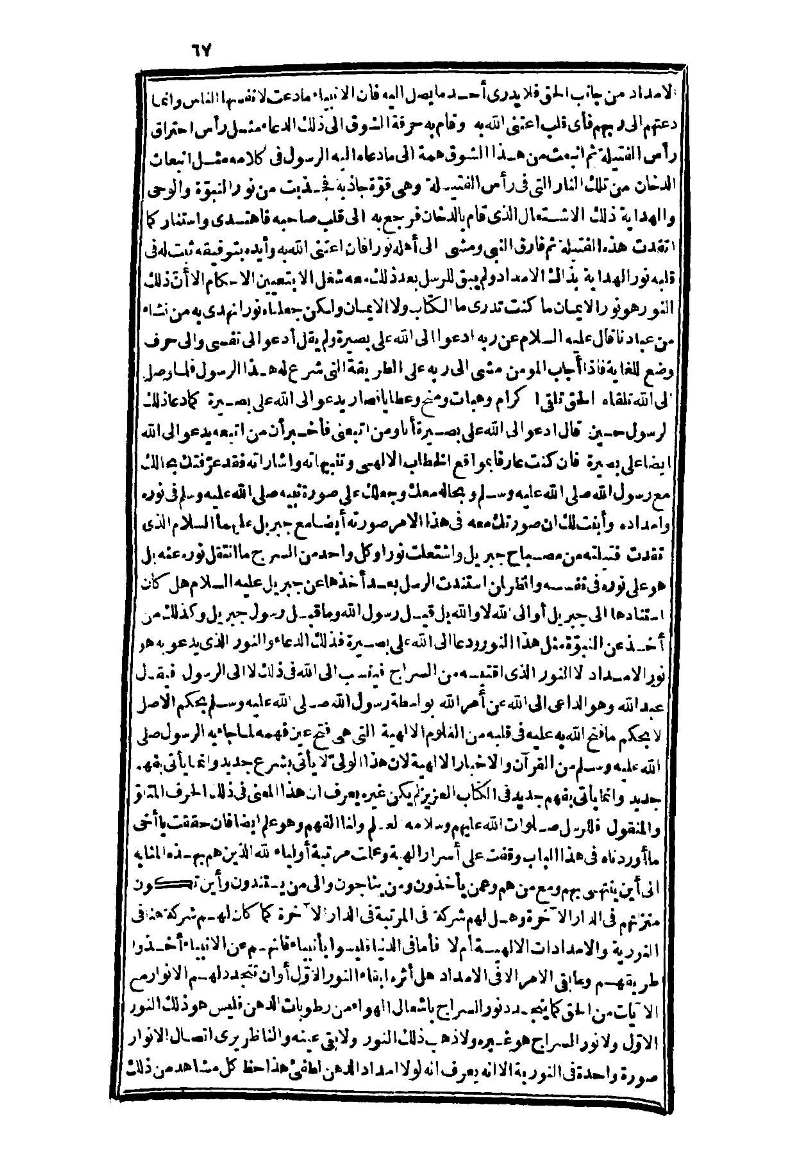 ٦٧
الامداد من جانب الحق فلا يدرى أحد ما يصل اليه فان الانبياء ما دعت لانفسها الناس وانما
دعتهم الى ربهم فأى قلب اعتنى الله به وقام به حرقة الشوق الى ذلك الدعاء مثل رأس احتراق
رأس الفتيلة ثم انبعث من هذا الشوق همة الى ما دعاه اليه الرسول فى كلامه مثل انبعاث
الدخان من تلك النار التى فى رأس الفتيلة وهى قوة جاذبة فجذبت من نور النبوة والوحى
والهداية ذلك الاشتعال الذى قام بالدخان فرجع به الى قلب صاحبه فاهتدى واستنار كما
اتقدت هذه الفتيلة ثم فارق النبى ومشى الى أهله نورا فان اعتنى الله به وأيده بتوفيقه ثبت له فى
قلبه نور الهداية بذلك الامداد ولم يبق للرسل بعد ذلك معه شغل الا بتعيين الاحكام الا أن ذلك
النور هو نور الايمان ما كنت تدرى ما الكتاب ولا الايمان ولكن جعلناه نورا نهدى به من نشاء
من عبادنا قال عليه السلام عن ربه ادعوا الى الله على بصيرة ولم يقل أدعو الى نفسى والى حرف
وضع للغاية فاذا أجاب المومن مشى الى ربه على الطريقة التى شرع له هذا الرسول فلما وصل
الى الله تلقاه الحق تلقى اكرام وهبات ومنح وعطايا فصار يدعو الى الله على بصيرة كما دعا ذلك
لرسول حين قال ادعو الى الله على بصيرة أنا ومن اتبعنى فأخبر أن من اتبعه يدعو الى الله
ايضا على بصيرة فان كنت عارفا بمواقع الخطاب الالهى وتنبيهاته واشاراته فقد عرفتك بحالك
مع رسول الله صلى الله عليه وسلم وبحاله معك وجعلك على صورة نبيه صلى الله عليه وسلم فى نوره
وامداده وأبنت لك ان صورتك معه فى هذا الامر صورته أيضا مع جبريل عليهما السلام الذى
تقدت فتيلته من مصباح جبريل واشتعلت نورا وكل واحد من السرج ما انتقل نوره عنه بل
هو على نوره فى نفسه وانظر لمن استندت الرسل بعد أخذها عن جبريل عليه السلام هل كان
استنادها الى جبريل أو الى الله لا والله بل قيل رسول الله وما قيل رسول جبريل وكذلك من
أخذ عن النبوة مثل هذا النور ودعا الى الله على بصيرة فذلك الدعاء والنور الذى يدعو به هو
نور الامداد لا النور الذى اقتبسه من السراج فينسب الى الله فى ذلك لا الى الرسول فيقال
عبد الله وهو الداعى الى الله عن أمر الله بواسطة رسول الله صلى الله عليه وسلم بحكم الاصل
لا بحكم ما فتح الله به عليه فى قلبه من العلوم الالهية التى هى فتح عين فهمه لما جاء به الرسول صلى
الله عليه وسلم من القرآن والاخبار الالهية لان هذا الولى لا يأتى بشرع جديد وانما يأتى بفهم
جديد وانما يأتى بفهم جديد فى الكتاب العزيز لم يكن غيره يعرف ان هذا المعنى فى ذلك الحرف المتلو
والمنقول فللرسل صلوات الله عليهم وسلامه العلم ولنا الفهم وهو علم ايضا فان حققت يا أخى
ما أوردناه فى هذا الباب وقفت على أسرار الهية وعلمت مرتبة أولياء الله الذين هم بهذه المثابه
الى أين ينتهى بهم ومع من هم وعمن يأخذون ومن يناجون والى من يستندون وأين تكون
منزلتهم فى الدار الآخرة وهل لهم شركة فى المرتبة فى الدار الآخرة كما كان لهم شركة هنا فى
النورية والامدادات الالهية أم لا فأما فى الدنيا فليسوا بأنبياء فانهم عن الانبياء أخذوا
طريقهم وما بقى الامر الا فى الامداد هل أثره ابقاء النور الاول أو ان تتجدد لهم الانوار مع
الآيات من الحق كما يتجدد نور السراج باشعال الهواء من رطوبات الدهن فليس هو ذلك النور
الاول ولا نور السراج هو غيره ولا ذهب ذلك النور ولا بقى عينه والناظر يرى اتصال الانوار
صورة واحدة فى النورية الا انه يعرف انه لولا امداد الدهن لطفئ هذا حظ كل مشاهد من ذلك